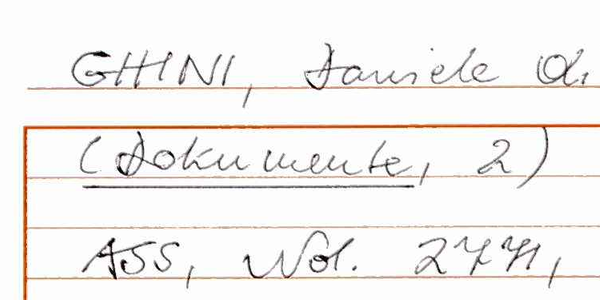 GHINI, Daniele di
(Dokumente, 2)
ASS, Not. 2771,